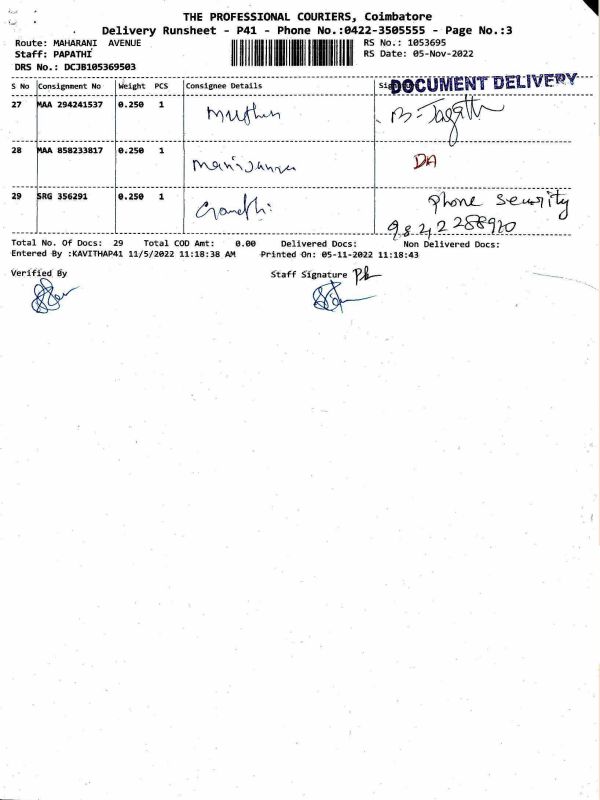 THE PROFESSIONAL COURIERS, Coimbatore
Delivery Runsheet - P41 - Phone No.:0422-3505555 - Page No.:3
Route: MAHARANI AVENUE RS No.: 1053695
Staff: PAPATHI RS Date: 05-Nov-2022
DRS No.: DCJB105369503
DOCUMENT DELIVERY
S No Consignment No Weight PCS Consignee Details
27 MAA 294241537 0.250 1
28 MAA 858233817 0.250 1 DA
29 SRG 356291 0.250 1 Gandhi Phone security
Total No. Of Docs: 29 Total COD Amt: 0.00 Delivered Docs: Non Delivered Docs:
Entered By :KAVITHAP41 11/5/2022 11:18:38 AM Printed On: 05-11-2022 11:18:43
Verified By Staff Signature